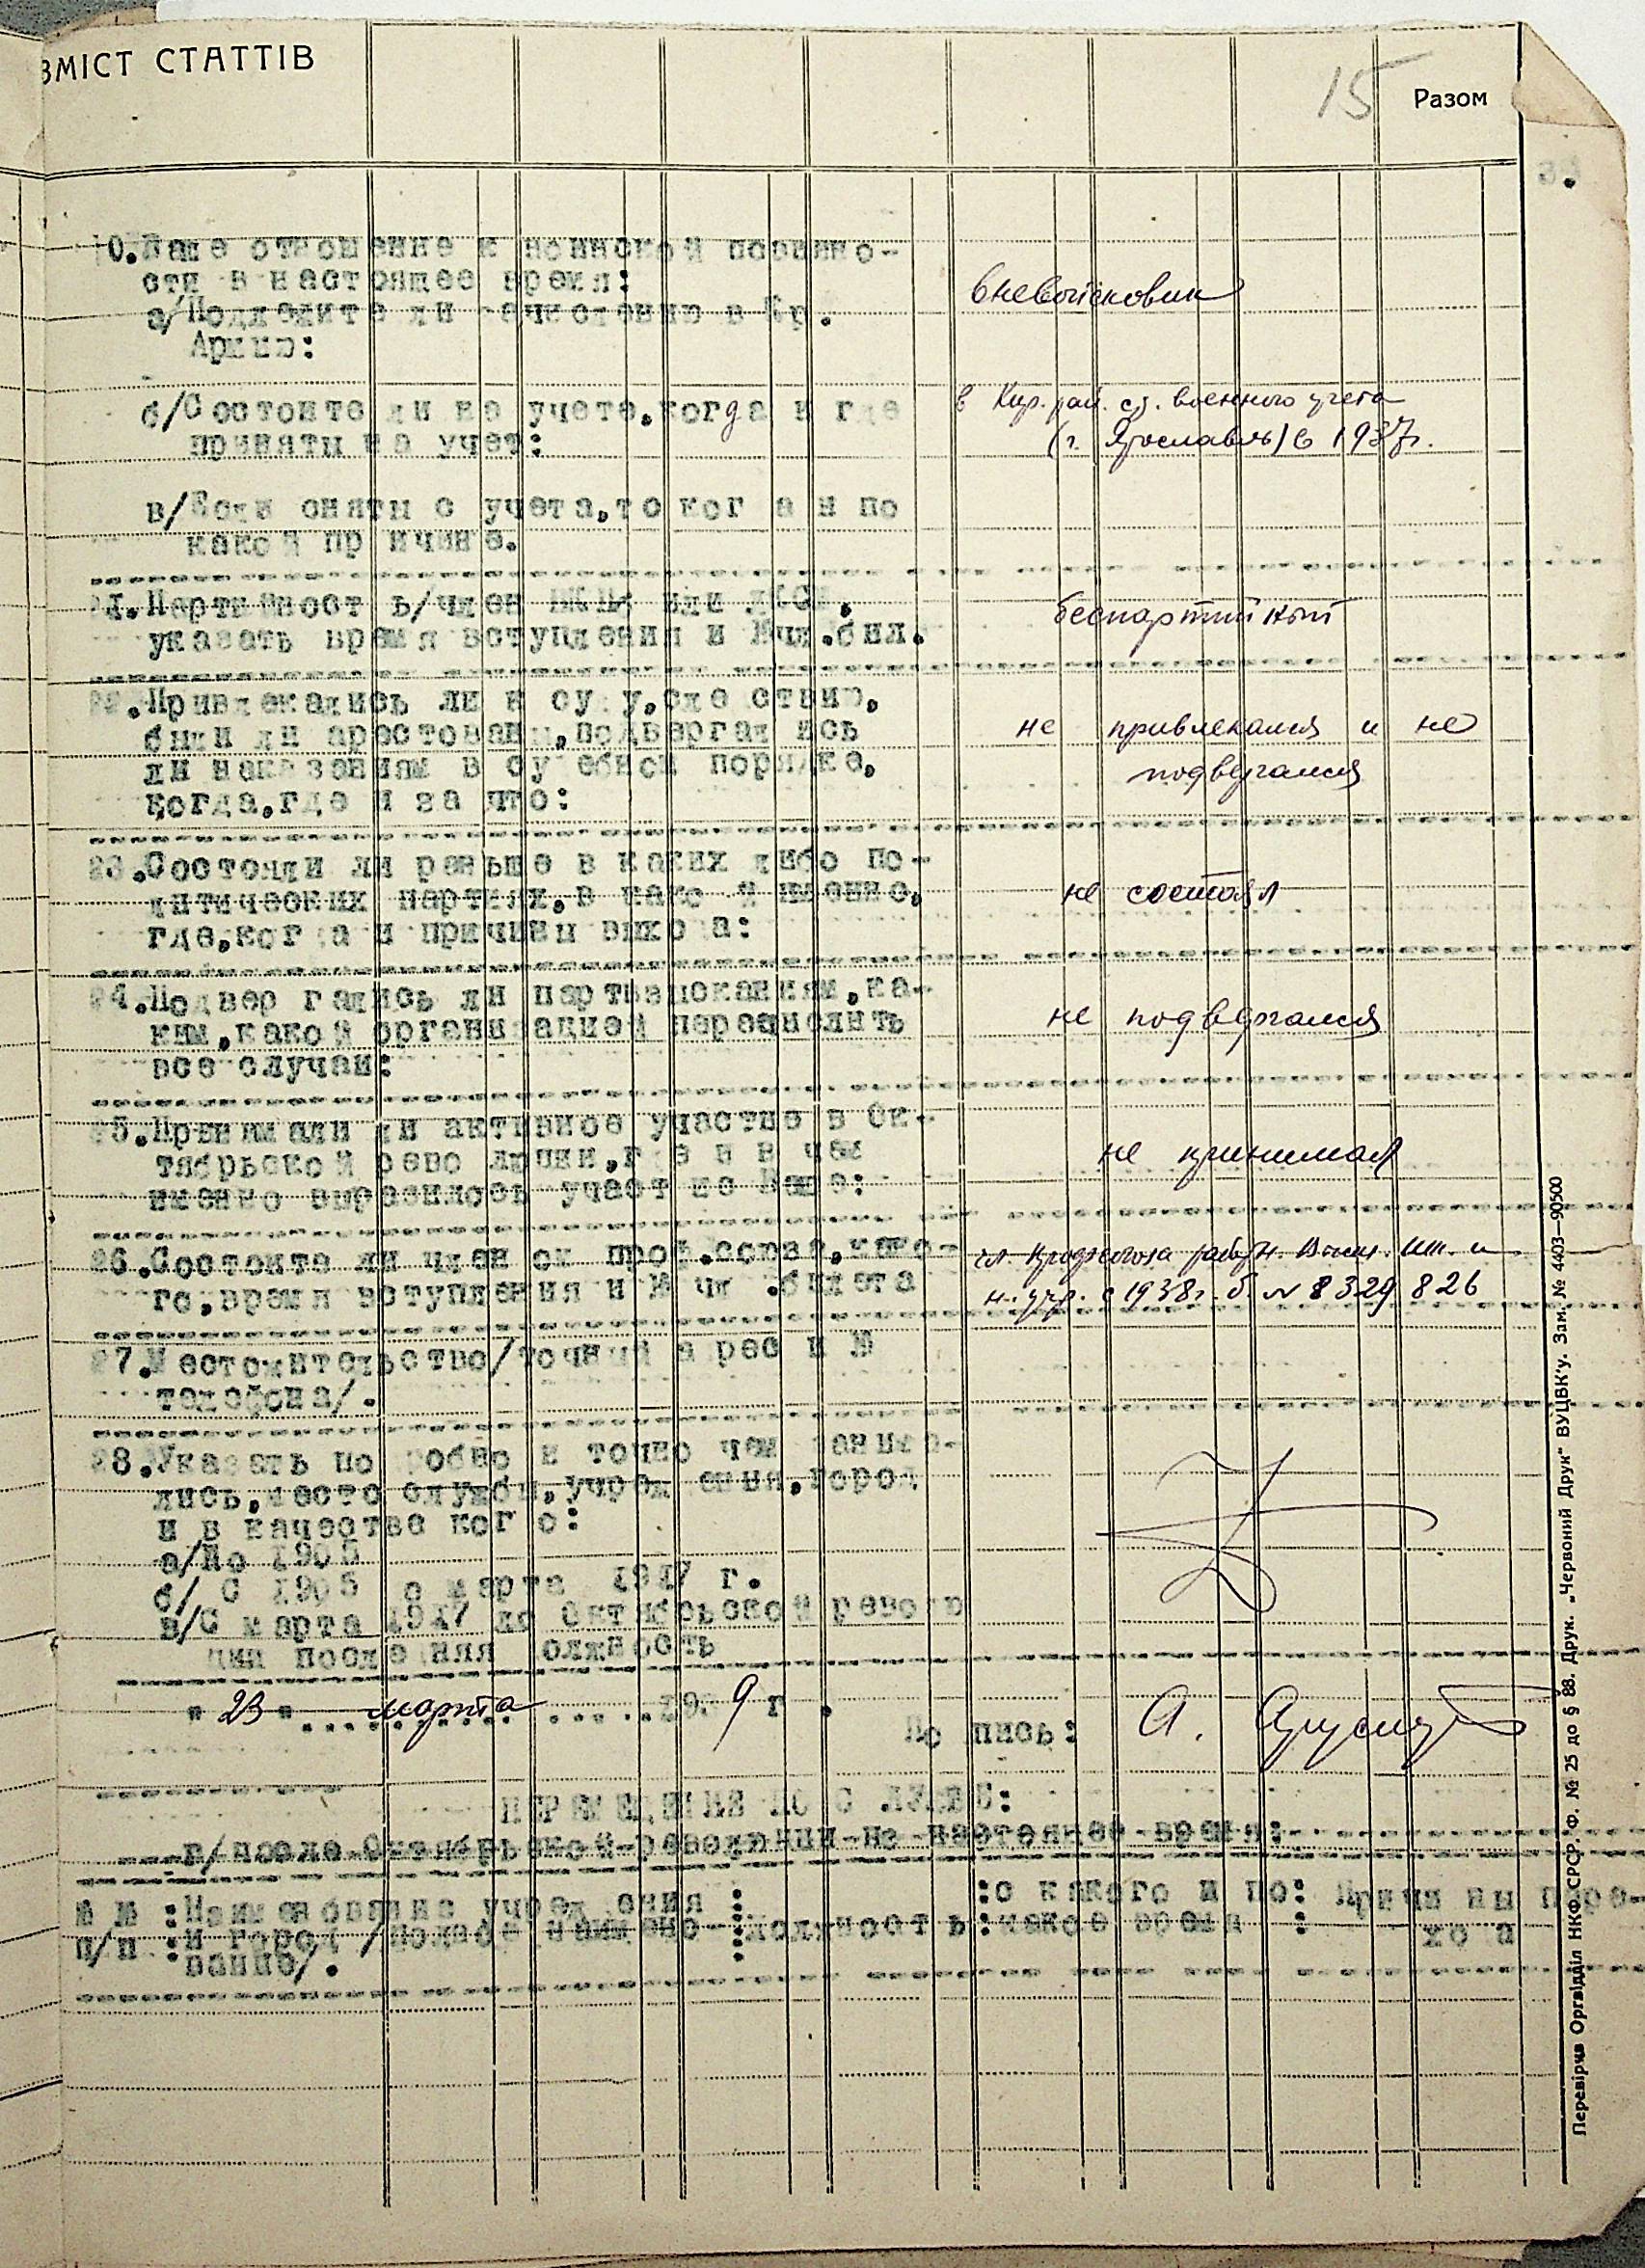 ЗМІСТ СТАТТІВ
15 Разом
3.
0.Ваше отношение к воинской повинно-
сти в настоящее время:
а/Подлежите ли зачислению в Кр.
Армию:
вневойсковик
б/Состоите ли на учете,когда и где
приняты на учет:
в Кир. рай. ст. военного учета
(г. Ярославль) в 1937г.
в/Если сняты с учета,то ког а и по
какой причине.
21.Партийность/член ВКПб или ЛКСМ,
указать время вступления и №чл.бил.
беспартийный
22.Привлекались ли к су у,сле ствию,
были ли арестованы,подвергались
ли наказаниям в су ебном порядке,
когда,где и за что:
не привлекался и не
подвергался
23.Состояли ли раньше в каких либо по-
литических партиях,в како й именно,
где,ког а и причины выхо а:
не состоял
24.Подвергались ли партвзысканиям,ка-
ким,какой организацией перечислить
все случаи:
не подвергался
25.Принимали ли активное участие в Ок-
тябрьской рево люции,г е и в чем
именно выразилось участие Ваше:
не принимал
26.Состоите ли член ом проф.союза,како-
го,время вступления и № чл .билета
чл. Профсоюза работн. Высш. шк. и
н. учр. с 1938г. б. № 8329826
27.Местожительство/точный а рес и №
телефона/.
28.Указать по робно и точно чем занима-
лись,место службы,учреж ения,город
и в качестве кого:
а/До 1905
б/ С 1905 о марта 1917 г.
в/С марта 1917 до Октябрьской револю
ции после няя олжность
" 23 " марта 1939 г .
По пись: А.
ПЕРЕМЕЩЕНИЯ ПО СЛУЖБЕ:
г/после Октябрьской революции на настоящее время:
№ № :Наименование учреж ения : :с какого и по: Причины пере-
п/п :и город /полное наимено- :Должность:какое время : хо а
вание/.
Перевірив Оргвідділ НКФ СРСР. Ф. № 25 до § 88. Друк. „Червоний Друк" ВУЦВК'у. Зам. № 4403—90500